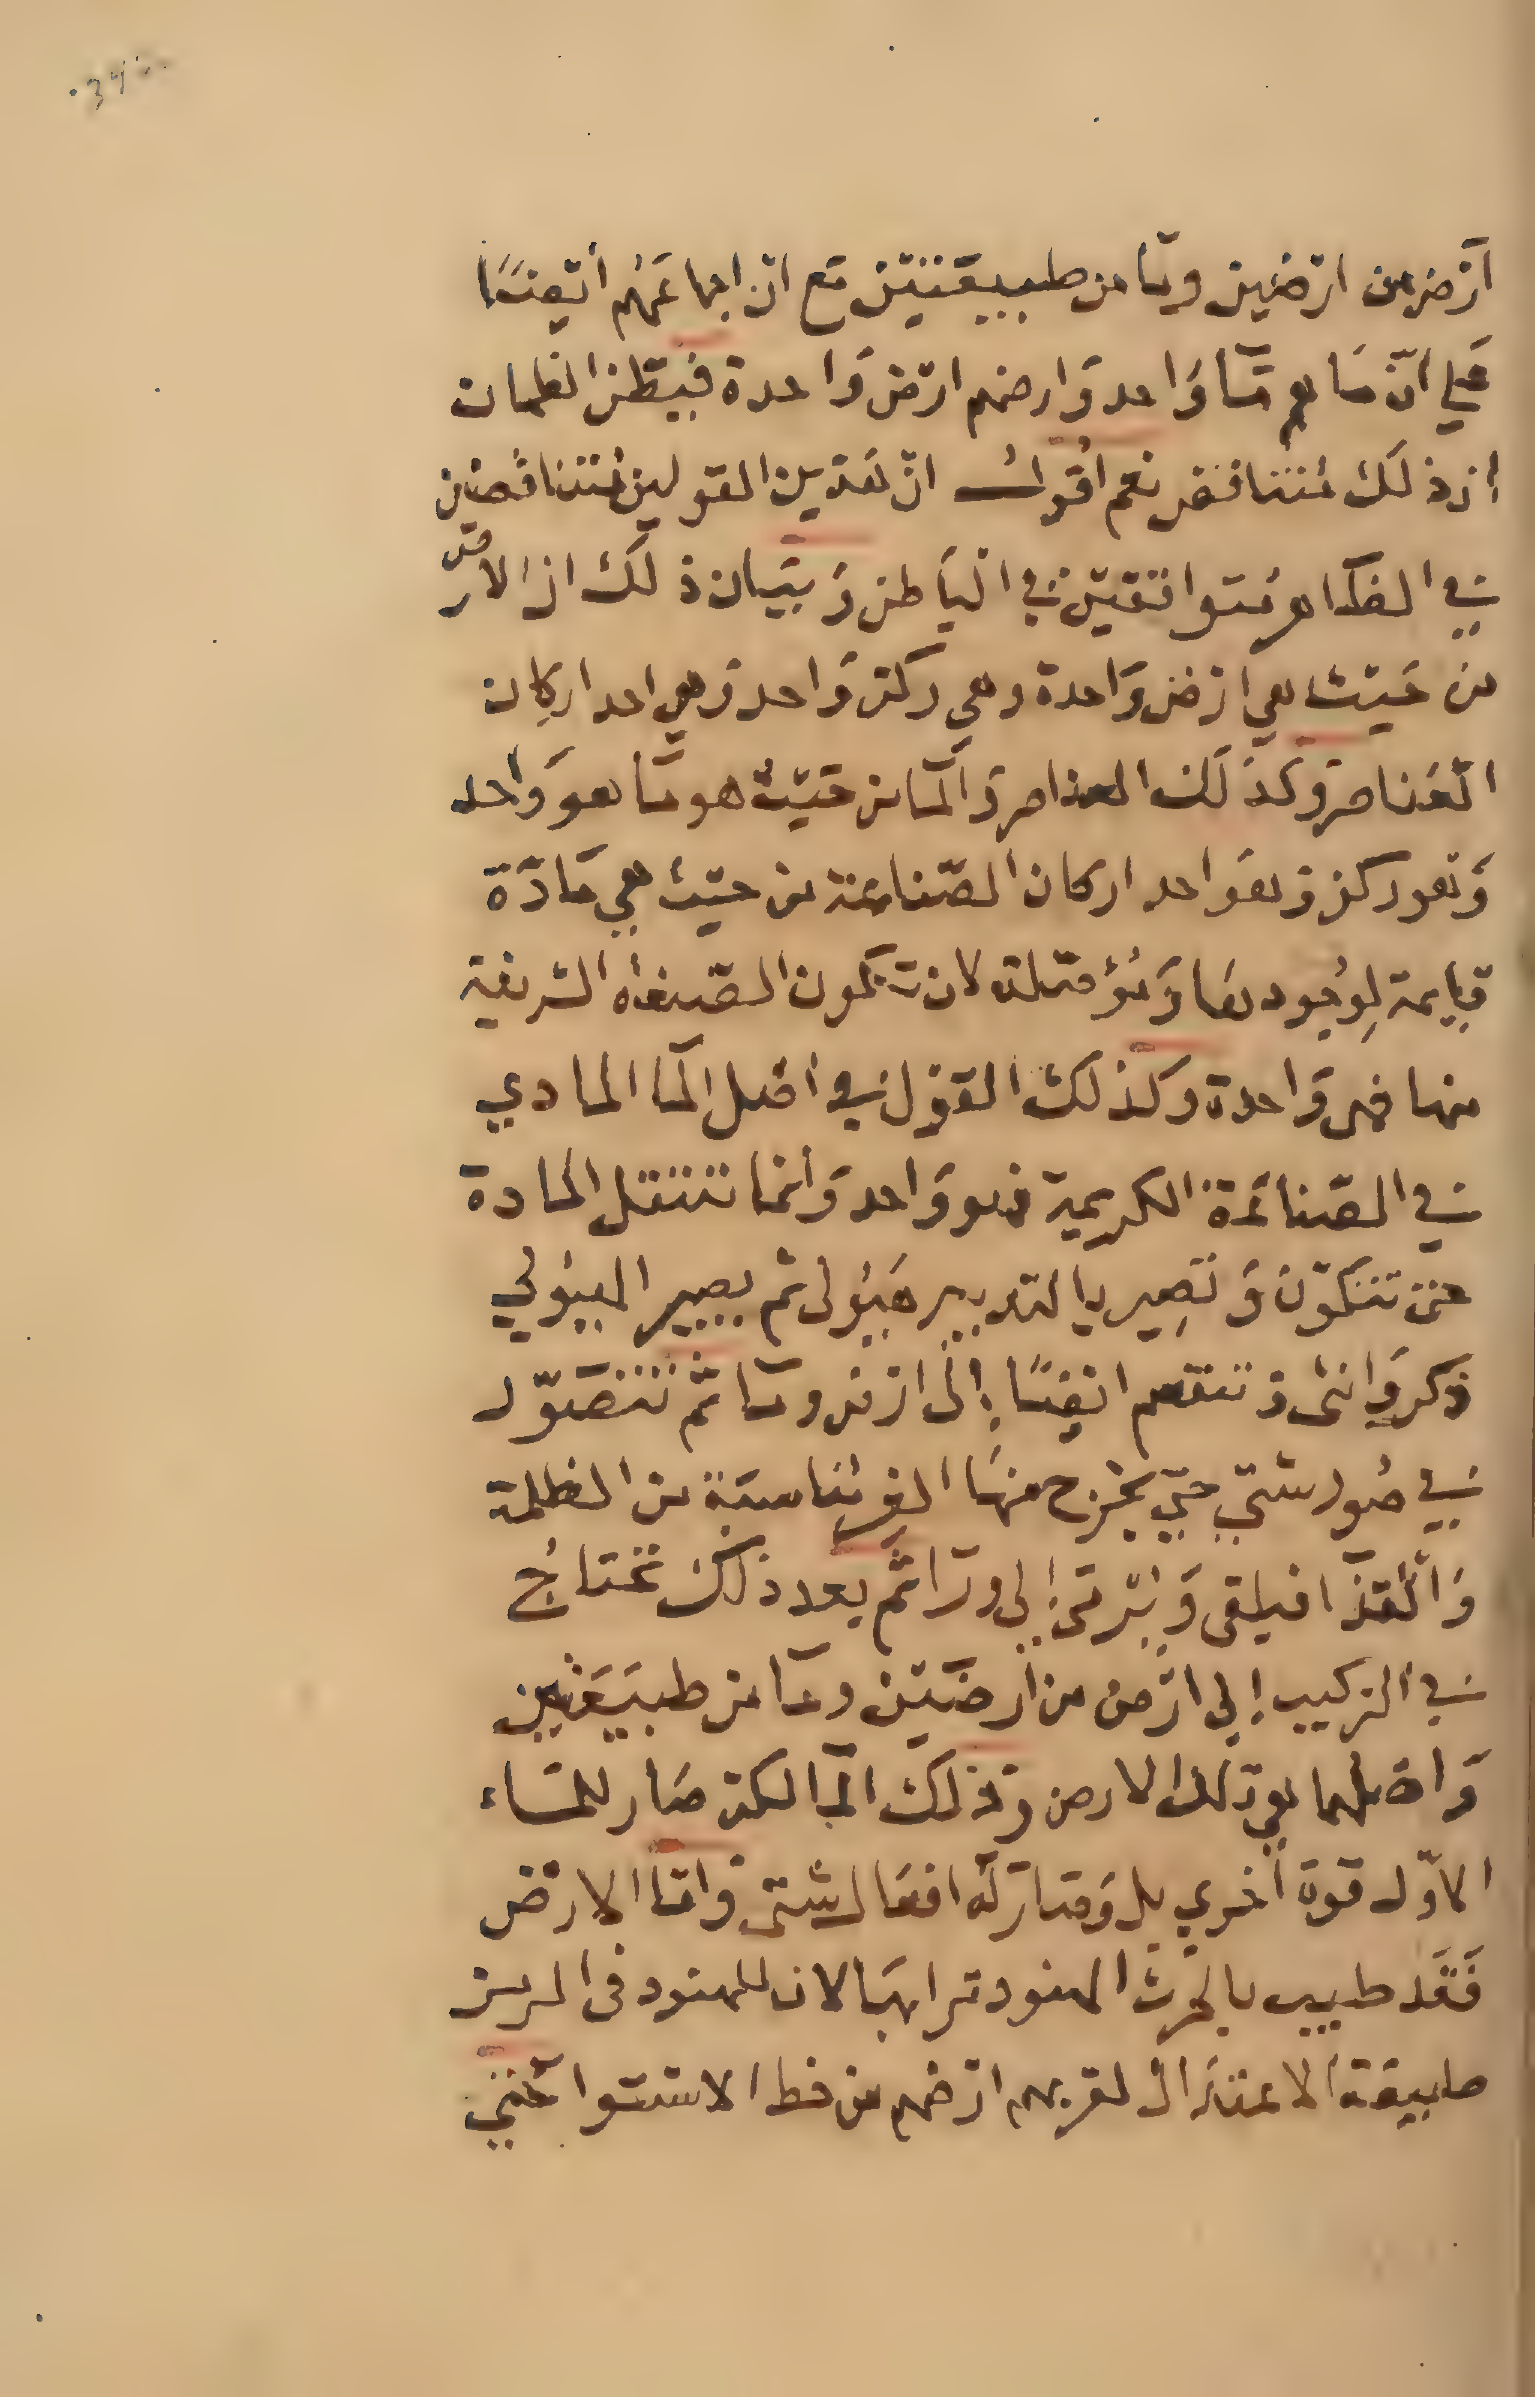 ارض من ارضين وما من طبيعتين مع ان اجماعهم ايضا
على ان ماهم ما واحد وارضهم ارض واحدة فيظن الظمان
ان ذلك متناقض نعم اقول ان هذين القولين متناقضان
في الظاهر متوافقين في الباطن وبيان ذلك ان الارض
من حيث هي ارض واحدة وهي ركن واحد وهي احد اركان
العناصر وكذلك العناصر والما من حيث هو ما هو واحد
وهو ركن وهو احد اركان الصناعة من حيث هي مادة
قايمة لوجودها ومؤصلة لان تكون الصنعة الشريفة
منها فهى واحدة وكذلك القول في اصل الما المادي
في الصناعة الكريمة فهو واحد وانما تنتقل المادة
حتى تتكون وتصير بالتدبير هيولى ثم يصير الهيولي
ذكر وانثى وتنقسم ايضا الى ارض وما ثم تتصور
في صور شتي حتي يخرج منها الغر مناسبة من الظلمة
والقذا فيلقى ويرمى الى ورا ثم بعد ذلك تحتاج
في التركيب الي ارض من ارضين وما من طبيعتين
واصلهما هو تلك الارض وذلك الما لكن صار للماء
الاول قوة اخري بل وصار له افعال شتى واما الارض
فقد طيب بالحرث الهنود ترابها لان للهنود فى المريز
طبيعة الاعتدال لقربهم ارضهم من خط الاستوا حتي